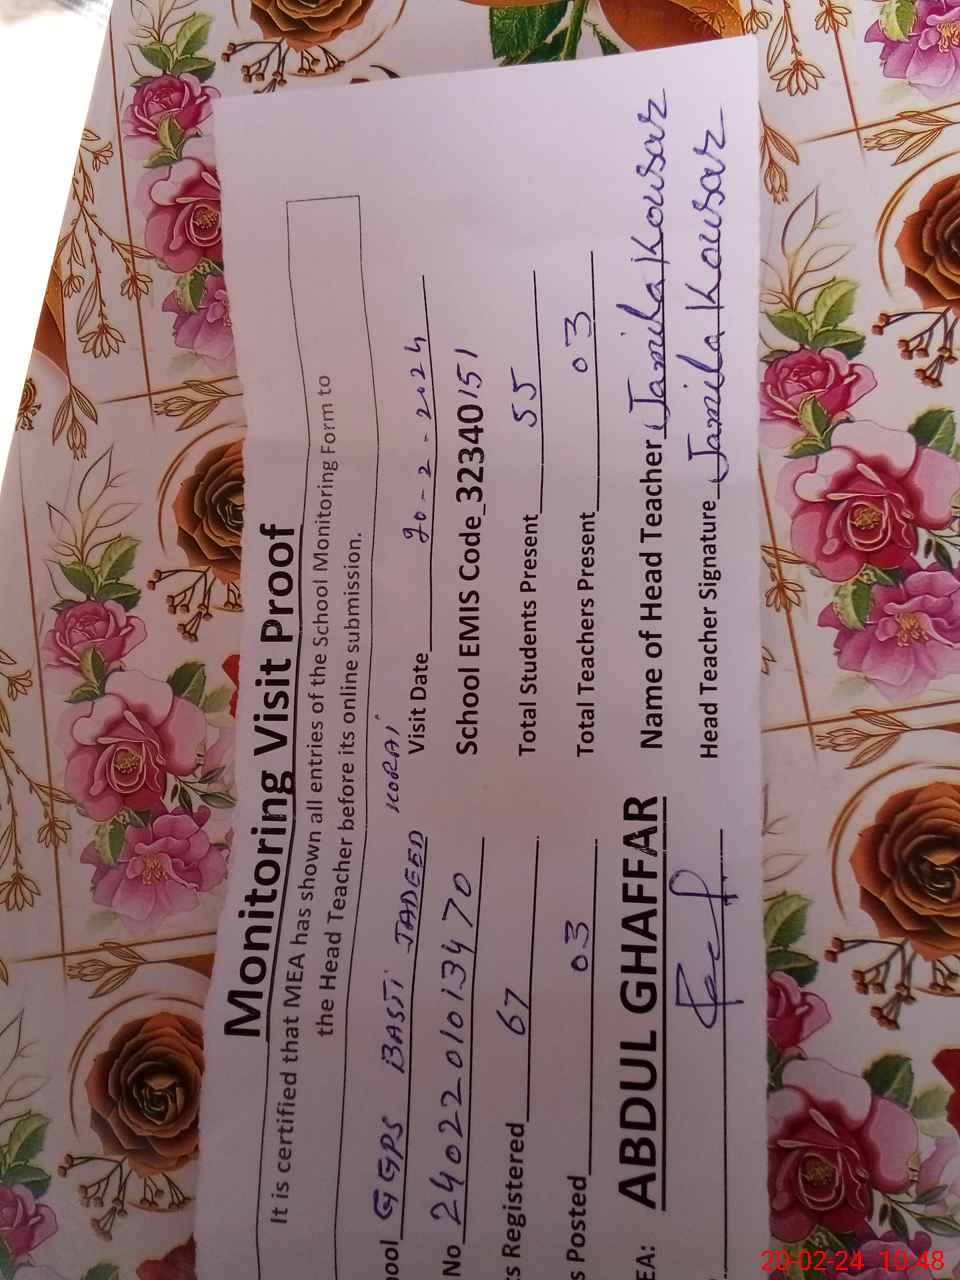 Monitoring Visit Proof
It is certified that MEA has shown all entries of the School Monitoring Form to
the Head Teacher before its online submission.
hool GGPS BASTI JADEED KORAI Visit Date 20-2-2024
No 2402201013470 School EMIS Code_32340151
ts Registered 67 Total Students Present 55
s Posted 03 Total Teachers Present 03
EA: ABDUL GHAFFAR Name of Head Teacher Jamila Kowsar
Head Teacher Signature Jamila Kowsar
20-02-24 10:48